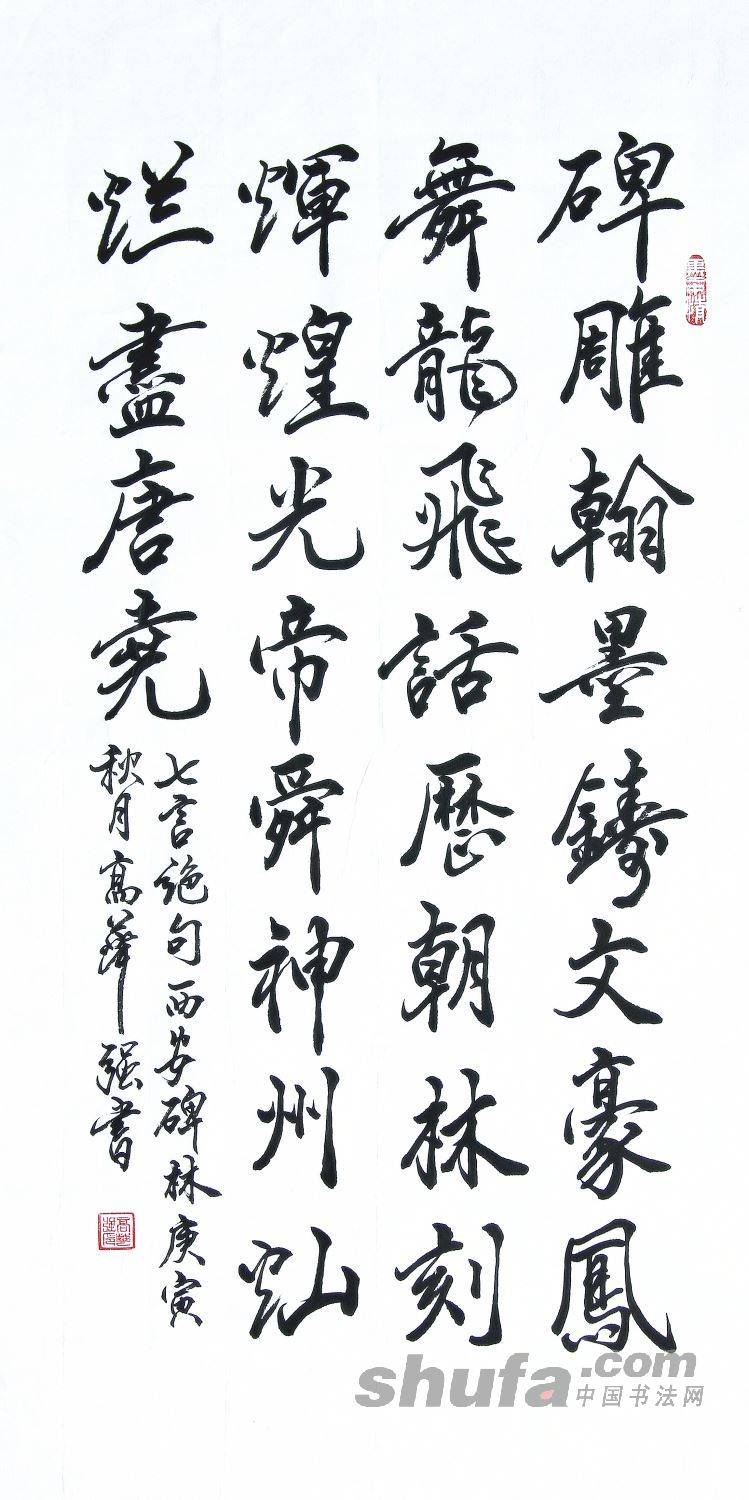 碑雕翰墨鑄文豪鳳
舞龍飛話歷朝林刻
輝煌光帝舜神州灿
烂盡唐堯
七言絶句西安碑林庚寅
秋月高華强書
shufa.com
中国书法网